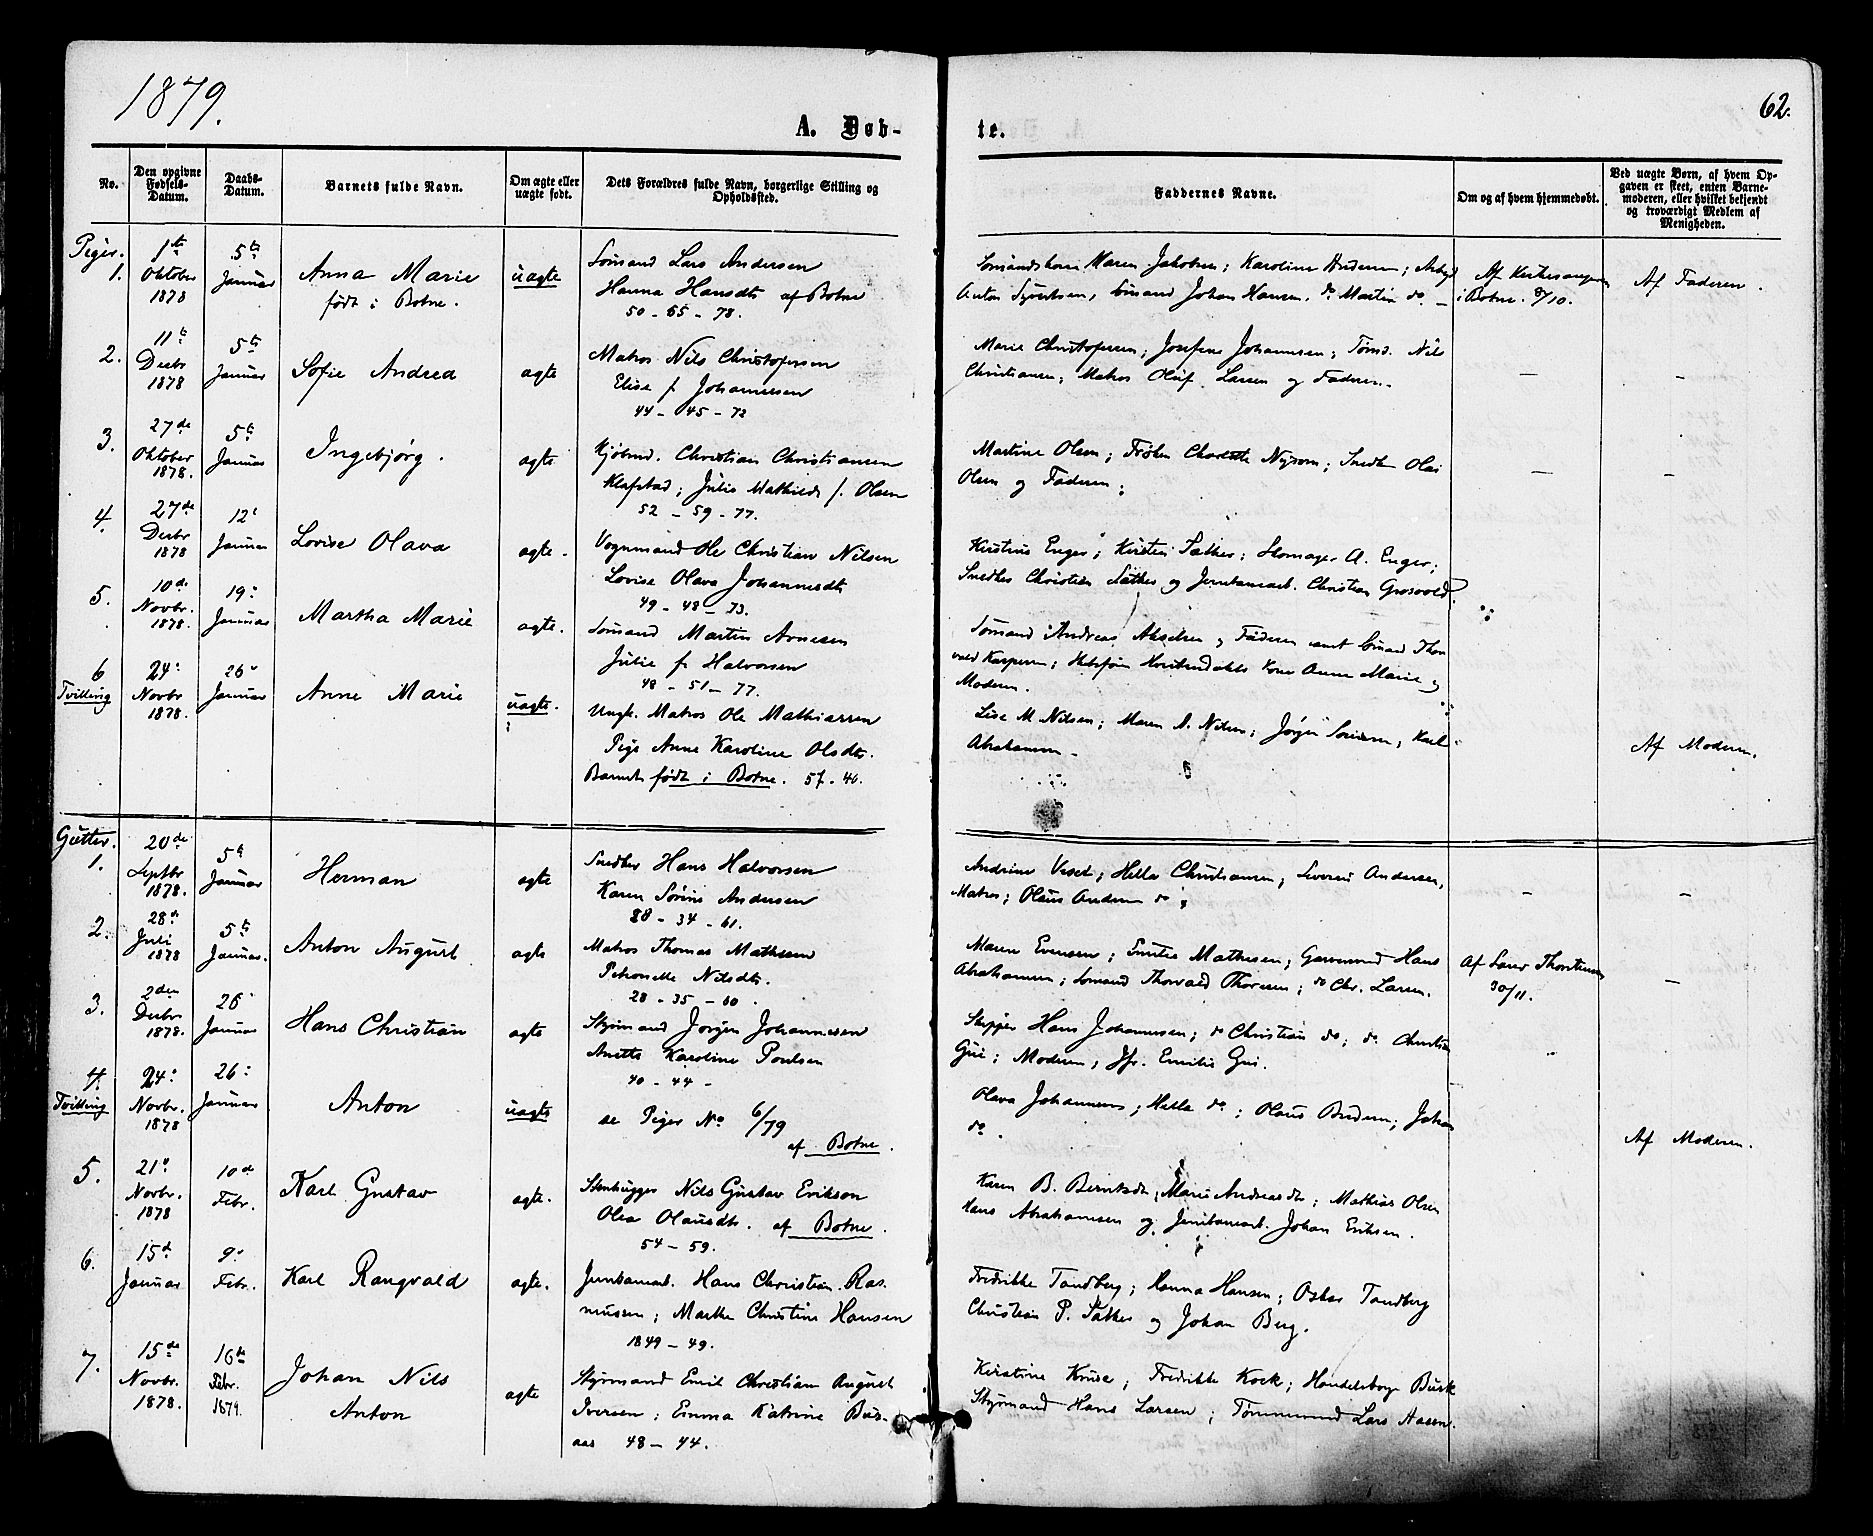 1879.
62.
A. Døb-
te.
No.
Den opgivne Fødsels-Datum.
Daabs-Datum.
Barnets fulde Navn.
Om ægte eller uægte født.
Dets Forældres fulde Navn, borgerlige Stilling og Opholdssted.
Faddernes Navne.
Om og af hvem hjemmedøbt.
Ved uægte Børn, af hvem Opgaven er skeet, enten Barnemoderen, eller hvilket bekjendt og troværdigt Medlem af Menigheden.
Piger.
1.
1ste Oktober 1878
5te Januar
Anna Marie
født i Botne.
uægte
Sømand Lars Andersen
Hanna Hansdt. af Botne
50 - 55 - 78.
Maren Jakobsen; Karoline Andersen;
Anton Syvertsen, Sømand Johan Hansen, do Martin do. -
Af Kirkesangeren
i Botne. 9/10.
Af Faderen.
2.
11te Decbr 1878
5te Januar
Sofie Andrea
ægte
Matros Nils Christofersen
Elise f. Johannesen
44 - 45 - 72
Marie Christofersen; Josefine Johannesen; Tømd. Nils
Christiansen; Matros Oluf Larsen og Faderen.
3.
27de Oktober 1878.
5te Januar
Ingebjørg.
ægte
Kjøbmd. Christian Christiansen
Klafstad; Julie Mathilde f. Olsen
52 - 59 - 77.
Martine Olsen; Frøken Charlotte Nysom; Snedk. Olai
Olsen og Faderen;
4.
27de Decbr 1878
12te Januar
Lovise Olava
ægte.
Vognmand Ole Christian Nilsen
Lovise Olava Johannesdt.
49 - 48 - 73.
Enger; Kirstine Sæther; Skomager A. Enger;
Snedker Christian Sæther og Jernbanearb. Christian Grosvold.
5.
10de Novbr. 1878.
19: Januar
Martha Marie
ægte.
Sømand Martin Arnesen
Julie f. Halvorsen
48 - 51 - 77.
Sømand Andreas Akselsen og Faderen samt Sømand Thor
vald Kaspersen; Kone Anne Marie og
Moderen.
6
Tvilling
24: Novbr 1878.
26: Januar
Anne Marie
uægte.
Ungk. Matros Ole Mathiassen
Pige Anne Karoline Olsdt.
Barnet født i Botne. 57 - 46.
Lise M. Nilsen; Maren A. Nilsen; Jørgen Sørensen; Karl
Abrahamsen.
Af Moderen.
Gutter.
1.
20de Septbr 1878.
5te Januar
Herman
ægte
Snedker Hans Halvorsen
Karen Sørine Andersen
28 - 34 - 61.
Andrine Veset; Helle Christiansen; Severin Andersen,
Matros; Olaus Andersen do;
2.
28de Juli 1878
5te Januar.
Anton August
ægte
Matros Thomas Mathisen
Petronelle Nilsdt.
28 - 35 - 60.
Maren Evensen; Emilie Mathisen; Hans
Abrahamsen; Sømand Thorvald Thoresen; do Chr. Larsen.
Af Thorstensen
30/11.
3.
2den Decbr 1878.
26: Januar
Hans Christian
ægte
Styrmand Jørgen Johannesen
Anette Karoline Poulsen
40 - 44 -
Skipper Hans Johannesen; do Christian do; do Christian
Gui; Moderen; Jfr. Emilie Gui.
4.
Tvilling
24: Novbr. 1878
26: Januar
Anton
uægte
se Piger No 6/79
af Botne.
Olava Johannesen; Helle do; Olaus Andersen; Johan
do.
Af Moderen.
5.
21: Novbr. 1878
10de Febr.
Karl Gustav
ægte.
Stenhugger Nils Gustav Erikson
Olea Olausdt. af Botne.
54 - 59.
Karen B. Berntsdt; Marie Andreasdt; Mathias Olsen
Hans Abrahamsen og Jernbanearb. Johan Eriksen.
6.
15de Januar
9: Febr.
Karl Rangvald
ægte.
Jernbanearb. Hans Christian Ras-
mussen; Marthe Christine Hansen
1849 - 49.
Fredrikke Tandberg; Hanna Hansen; Oskar Tandberg
Christian P. Sæther og Johan Berg.
7.
15de Novbr. 1878.
16de Febr. 1879.
Johan Nils
Anton
ægte
Styrmand Emil Christian August
Iversen; Emma Katrine Bus-
aas 48 - 44.
Kirstine Kruse; Fredrikke Kock; Handelsborger Busk
Styrmand Hans Larsen; Tømmermand Lars Aasen.